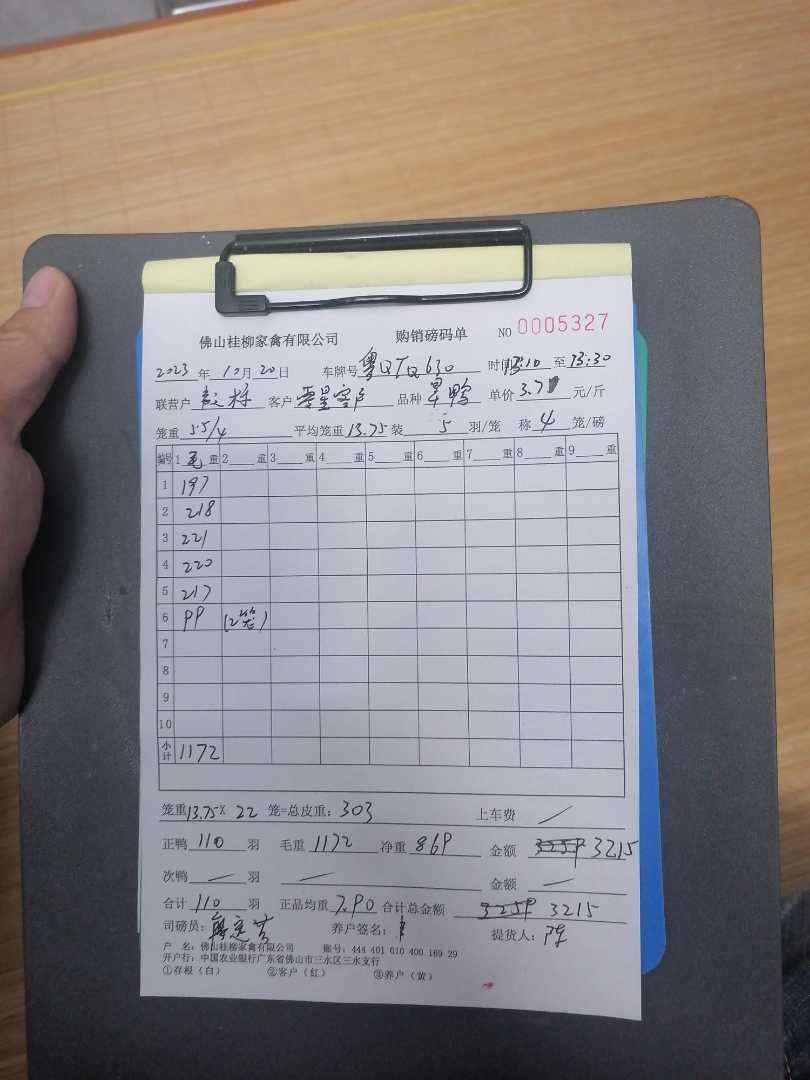 佛山桂柳家禽有限公司 购销磅码单 NO 0005327
2023 年 10 月 20 日 车牌号 粤QTQ630 时间 13:10 至 13:30
联营户 客户 零星客户 品种 旱鸭 单价 3.7 元/斤
笼重 55/4 平均笼重 13.75 装 5 羽/笼 称 4 笼/磅
编号 1 毛 重 2 重 3 重 4 重 5 重 6 重 7 重 8 重 9 重
1 197
2 218
3 221
4 220
5 217
6 99 (2笼)
7
8
9
10
小计 1172
笼重 13.75 X 22 笼=总皮重: 303 上车费 /
正鸭 110 羽 毛重 1172 净重 869 金额 3259 3215
次鸭 / 羽 / 金额 /
合计 110 羽 正品均重 7.90 合计总金额 3259 3215
司磅员: 养户签名: 提货人:
户 名: 佛山桂柳家禽有限公司 账号: 444 401 010 400 169 29
开户行: 中国农业银行广东省佛山市三水区三水支行
①存根(白) ②客户(红) ③养户(黄)